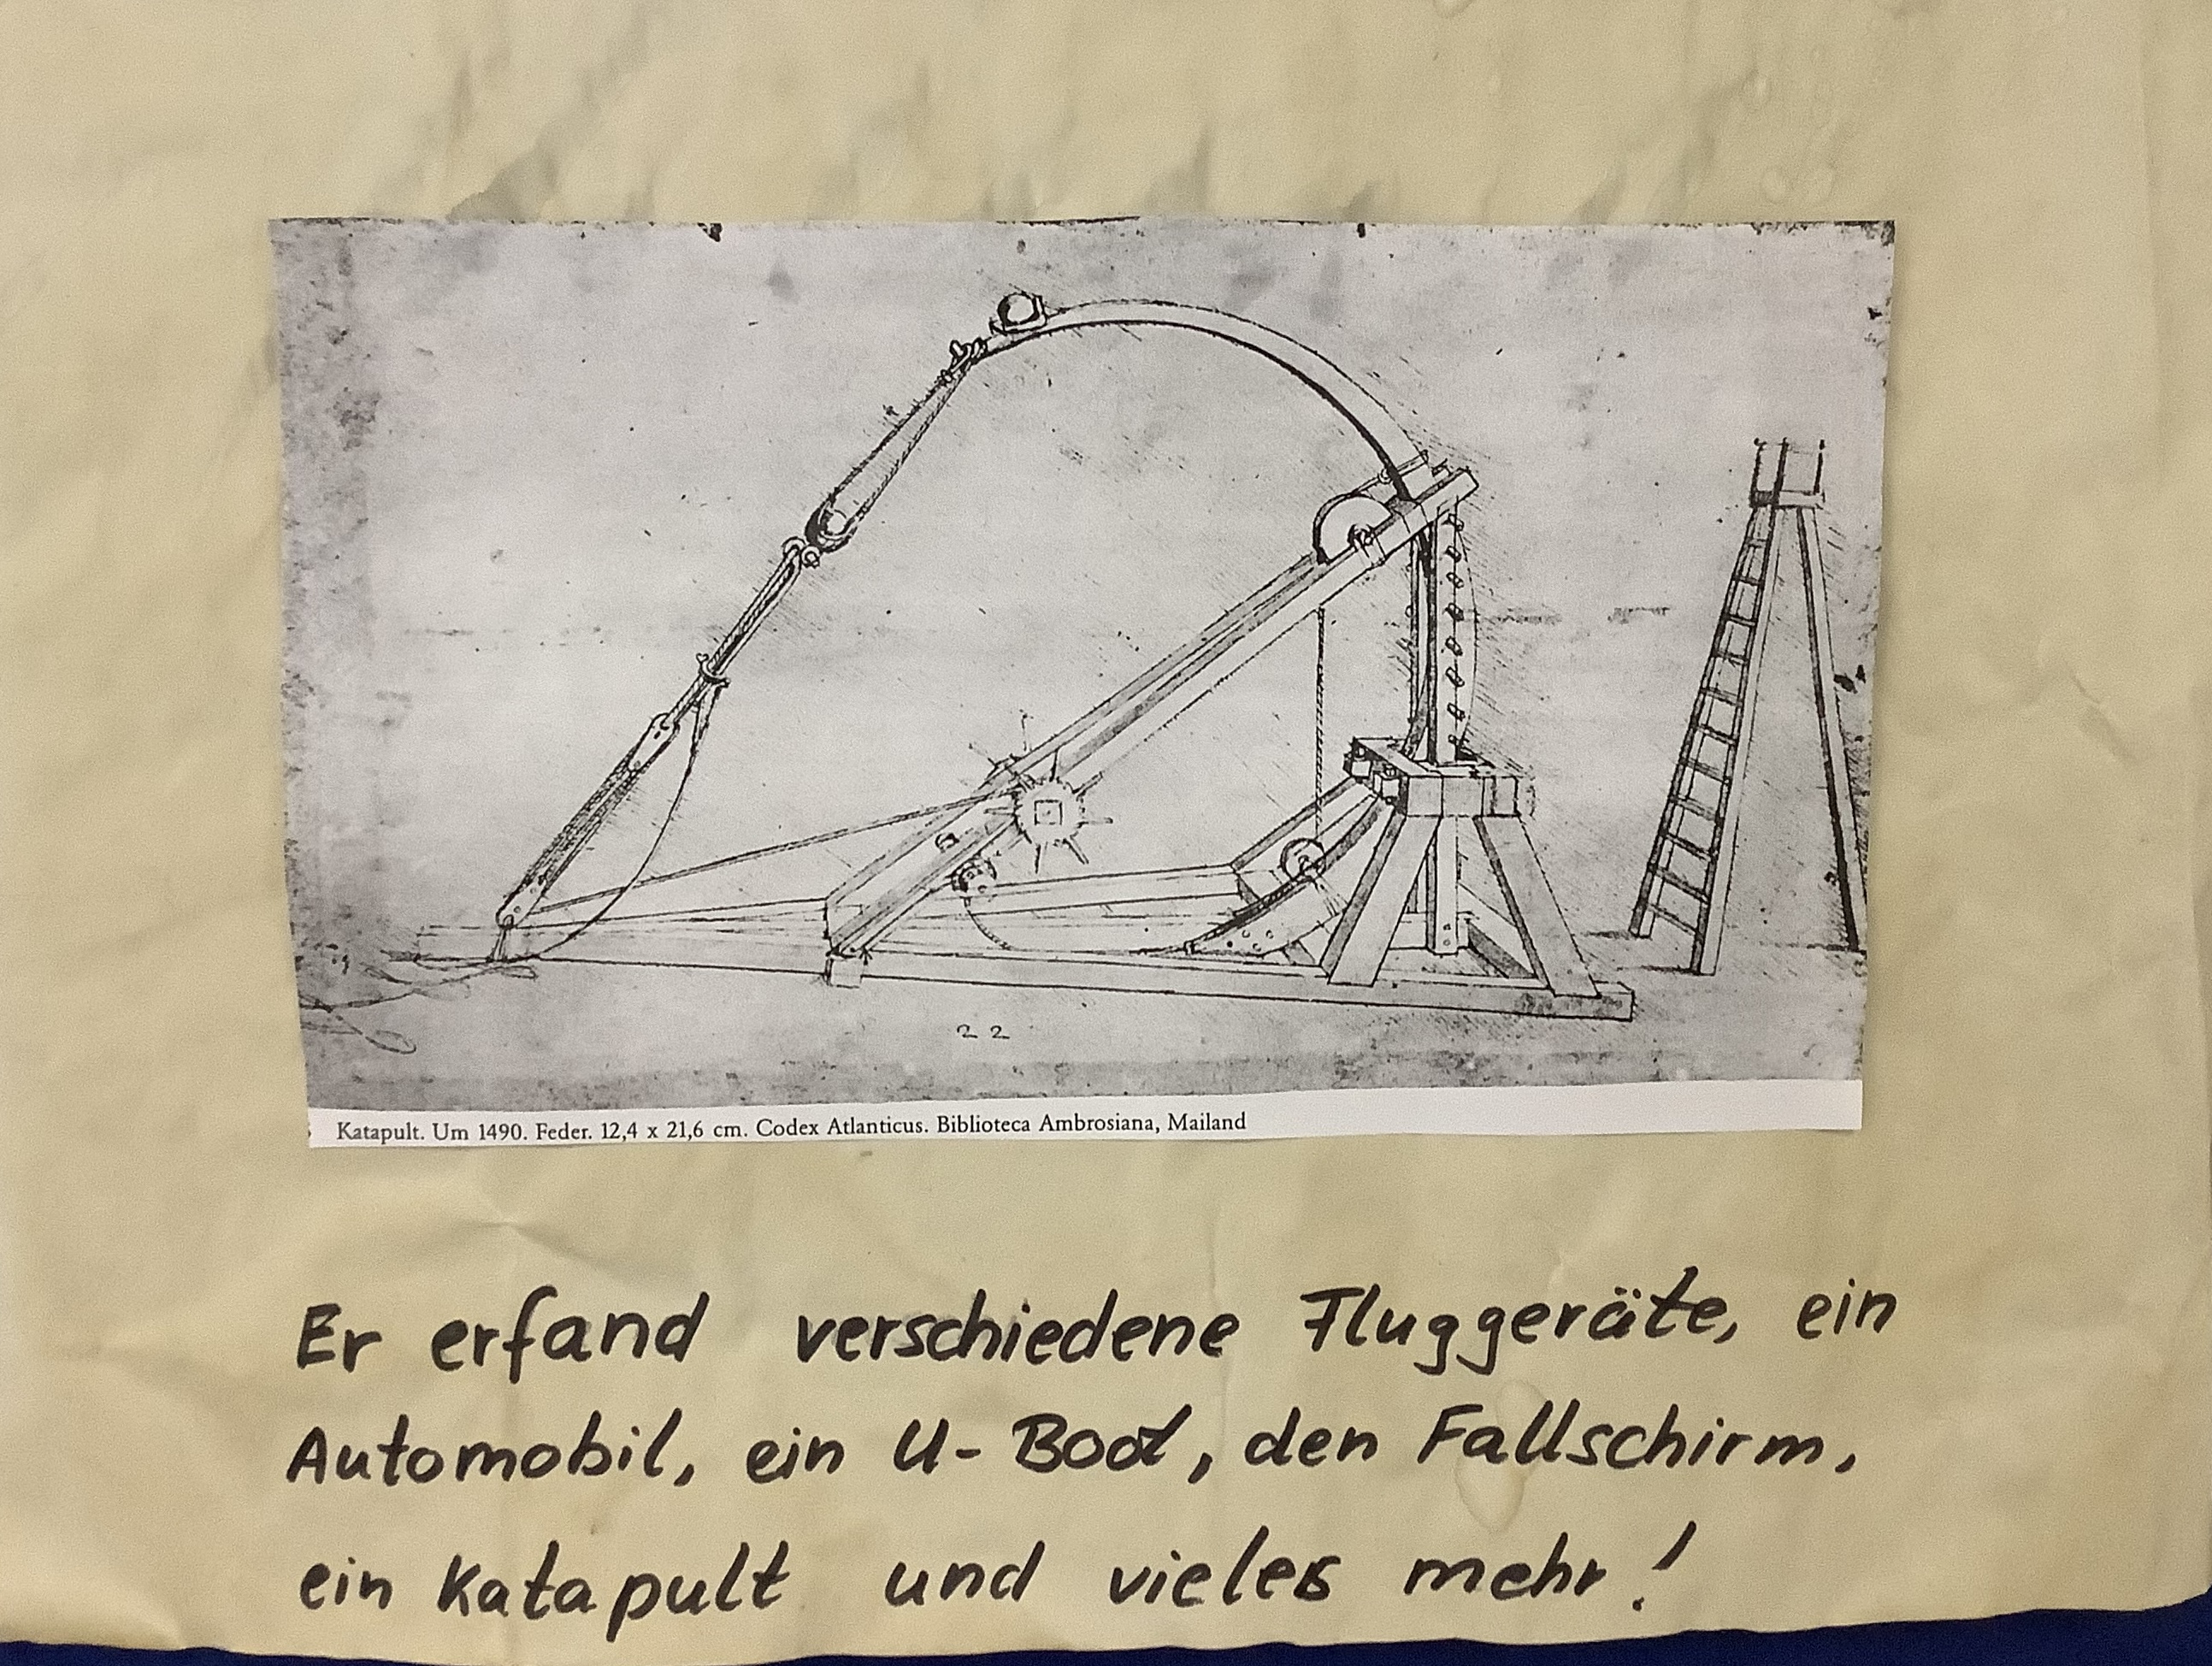 22
Katapult. Um 1490. Feder. 12,4 x 21,6 cm. Codex Atlanticus. Biblioteca Ambrosiana, Mailand
Er erfand verschiedene Fluggeräte, ein
Automobil, ein U-Boot, den Fallschirm,
ein Katapult und vieles mehr!